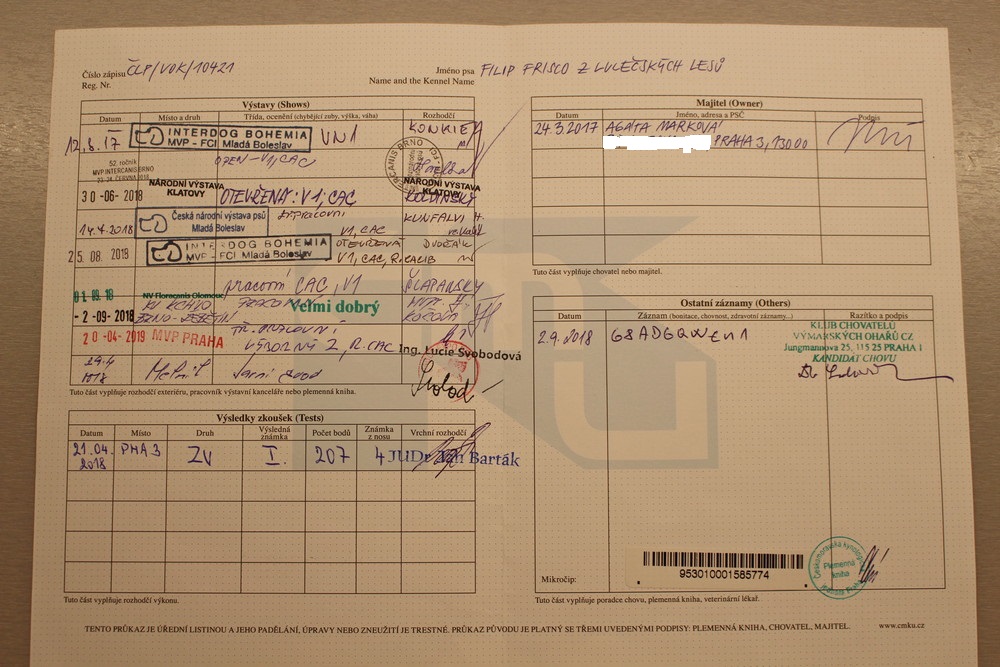 Číslo zápisu ČLP/VOK/10421
Reg. Nr.
Jméno psa FILIP FRISCO Z LULEČSKÝCH LESŮ
Name and the Kennel Name
Výstavy (Shows)
Datum Místo a druh Třída, ocenění (chybějící zuby, výška, váha) Rozhodčí
12.8.17 INTERDOG BOHEMIA VN1
MVP - FCI Mladá Boleslav
52. ročník
MVP INTERCANIS BRNO
OPEN-V1, CAC
INTERCANIS BRNO
30-06-2018 NÁRODNÍ VÝSTAVA KLATOVY OTEVŘENÁ: V1, CAC NÁRODNÍ VÝSTAVA KLATOVY
14.4.2018 Česká národní výstava psů KUNFALVI
Mladá Boleslav V1, CAC
25.08.2018 INTERDOG BOHEMIA OTEVŘENÁ DVOŘÁK
MVP - FCI Mladá Boleslav V1, CAC, R.CACIB
01.09.18 NV Floracanis Olomouc pracovní CAC, V1 ŠLAPANSKÝ
-2-09-2018 KV KCHVO velmi dobrý
20-04-2019 MVP PRAHA VÝBORNÝ 2, R.CAC
Ing. Lucie Svobodová
Tuto část vyplňuje rozhodčí exteriéru, pracovník výstavní kanceláře nebo plemenná kniha.
Výsledky zkoušek (Tests)
Datum Místo Druh Výsledná známka Počet bodů Známka z nosu Vrchní rozhodčí
21.04. 2018 PHA3 ZV I. 207 4 JUDr. Jan Barták
Tuto část vyplňuje rozhodčí výkonu.
Majitel (Owner)
Datum Jméno, adresa a PSČ Podpis
24.3.2017 AGÁTA MARKOVÁ
PRAHA 3, 13000
Tuto část vyplňuje chovatel nebo majitel.
Ostatní záznamy (Others)
Datum Záznam (bonitace, chovnost, zdravotní záznamy...) Razítko a podpis
2.9.2018
KLUB CHOVATELŮ
VÝMARSKÝCH OHAŘŮ CZ
Jungmannova 25, 115 25 PRAHA 1
KANDIDÁT CHOVU
Mikročip:
953010001585774
Českomoravská kynologická
Plemenná
kniha
Tuto část vyplňuje poradce chovu, plemenná kniha, veterinární lékař.
TENTO PRŮKAZ JE ÚŘEDNÍ LISTINOU A JEHO PADĚLÁNÍ, ÚPRAVY NEBO ZNEUŽITÍ JE TRESTNÉ. PRŮKAZ PŮVODU JE PLATNÝ SE TŘEMI UVEDENÝMI PODPISY: PLEMENNÁ KNIHA, CHOVATEL, MAJITEL.
www.cmku.cz